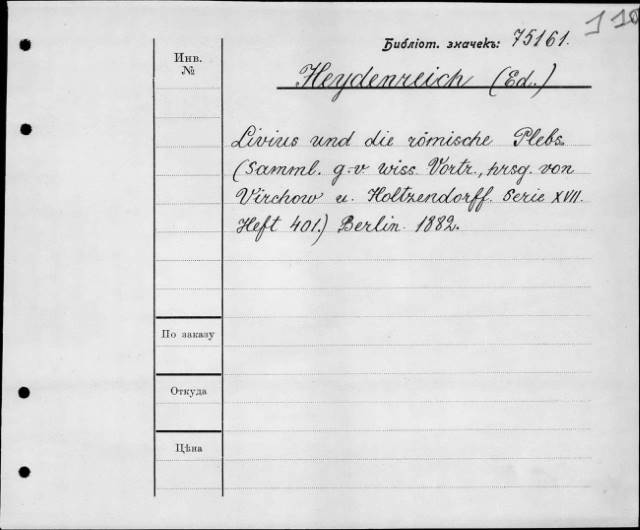 110
Библіот. значекъ: 75161.
Инв.
№
Heydenreich (Ed.,)
Livius und die römische Plebs.
(Samml. g.-v wiss. Vortr., hrsg. von
Virchow u. Holtzendorff. Serie XVII.
Heft 401.) Berlin. 1882.
По заказу
Откуда
Цѣна